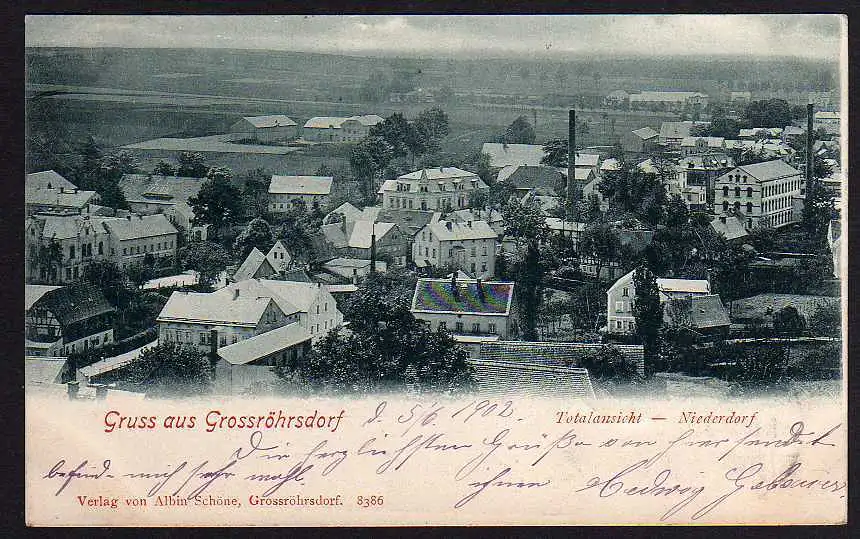 Gruss aus Grossröhrsdorf d. 5/6 1902. Totalansicht — Niederdorf
Die herzlichsten Grüße von hier sendet
befinde mich sehr wohl. ihnen Hedwig
Verlag von Albin Schöne, Grossröhrsdorf. 8386